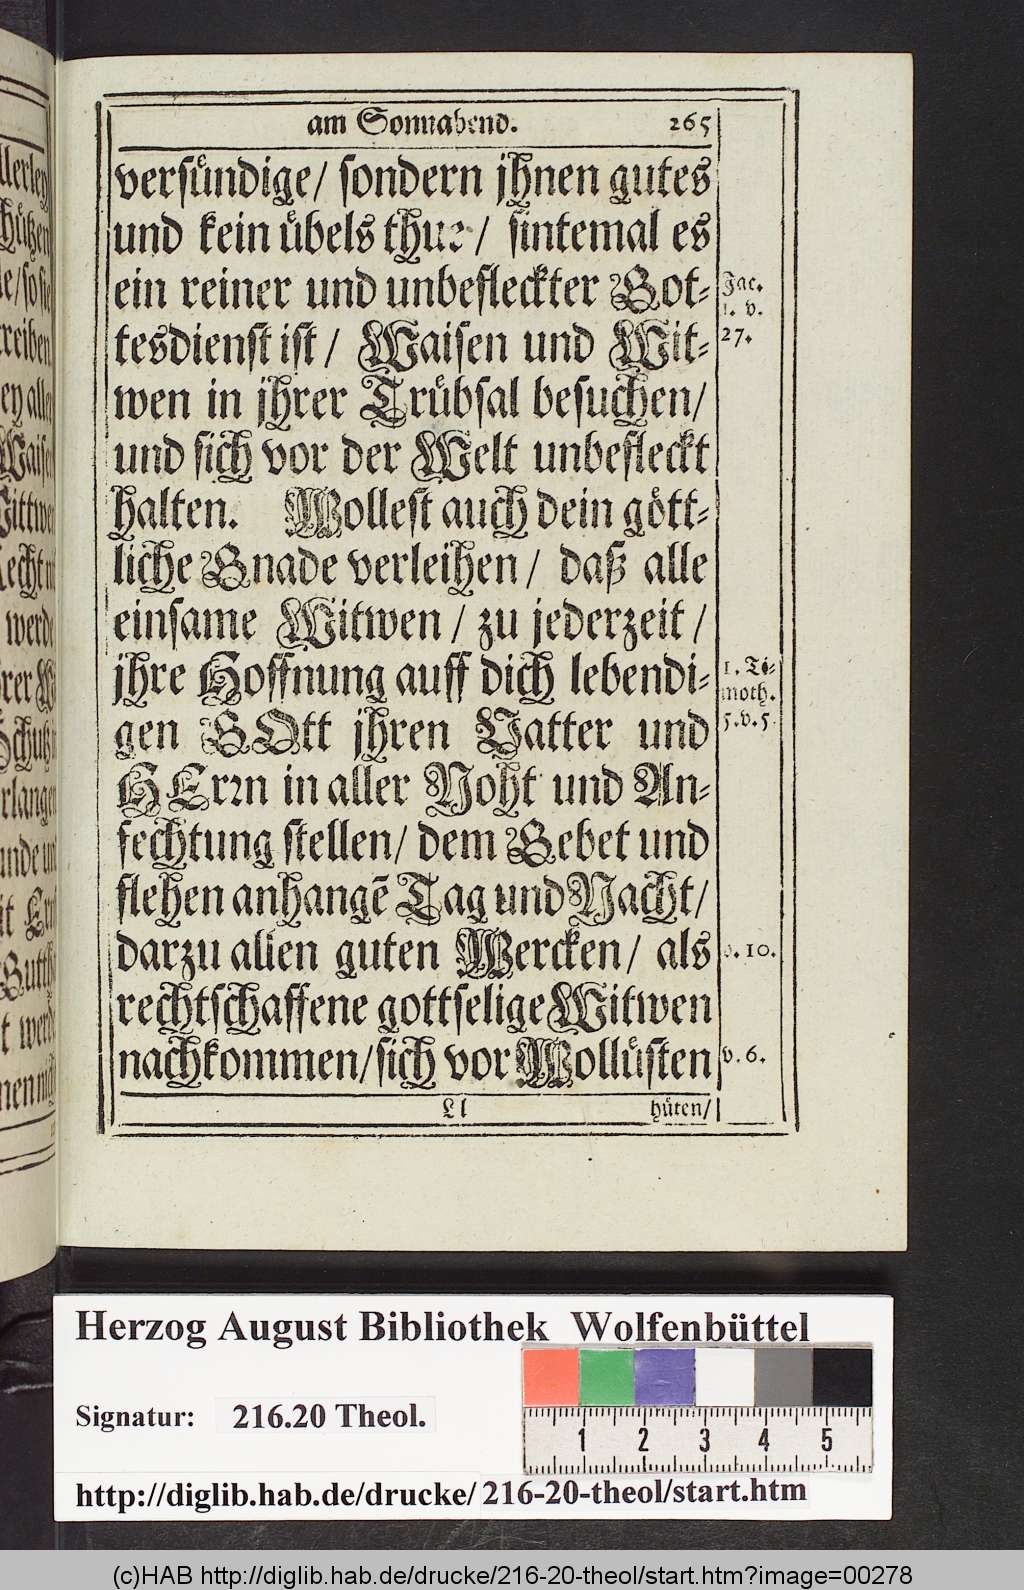 am Sonnabend. 265
versuͤndige/ sondern jhnen gutes
und kein uͤbels thue/ sintemal es
ein reiner und unbefleckter Got-
tesdienst ist/ Waisen und Wit-
wen in jhrer Truͤbsal besuchen/
und sich vor der Welt unbefleckt
halten. Wollest auch dein goͤtt-
liche Gnade verleihen/ daß alle
einsame Witwen/ zu jederzeit/
jhre Hoffnung auff dich lebendi-
gen GOtt jhren Vatter und
HErrn in aller Noht und An-
fechtung stellen/ dem Gebet und
flehen anhangē Tag und Nacht/
darzu allen guten Wercken/ als
rechtschaffene gottselige Witwen
nachkommen/sich vor Wolluͤsten
Ll huͤten/
Jac.
1. v.
27.
1. Ti-
moth.
5.v.5.
v. 10.
v. 6.
Herzog August Bibliothek Wolfenbüttel
Signatur: 216.20 Theol.
1 2 3 4 5
http://diglib.hab.de/drucke/216-20-theol/start.htm
(c)HAB http://diglib.hab.de/drucke/216-20-theol/start.htm?image=00278